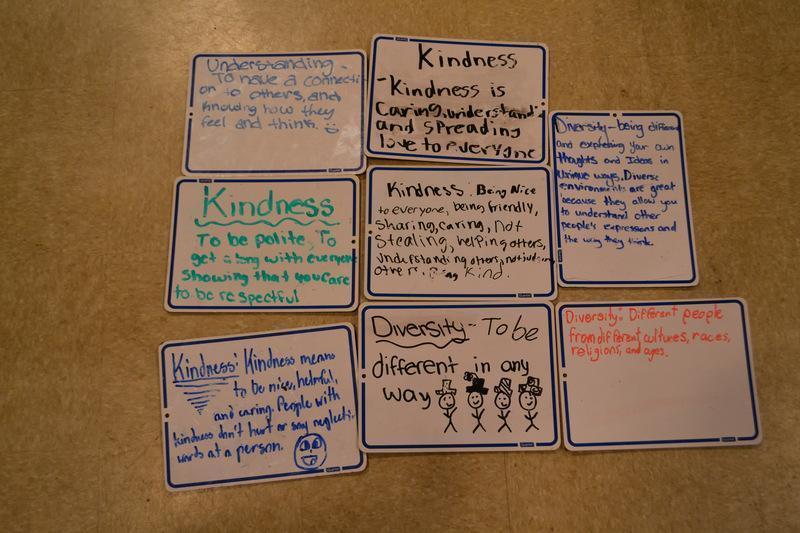 Understanding -
To have a connecti
on to others, and
knowing how they
feel and think.
Kindness
- Kindness is
Caring, understand
and spreading
love to everyone
Diversity - being different
and expressing your own
thoughts and Ideas in
unique ways. Diverse
environments are great
because they allow you
to understand other
people's expressions and
the way they think.
Kindness
To be polite, To
get along with everyone
showing that you care
to be respectful
Kindness: Being Nice
to everyone, being friendly,
sharing, caring, not
Stealing, helping others,
understanding others, not
others, Being Kind.
Kindness: Kindness means
to be nice, helpful,
and caring. People with
kindness don't hurt or say neglecti
words at a person.
Diversity - To be
different in any
way
Diversity: Different people
from different cultures, races,
religions, and ages.